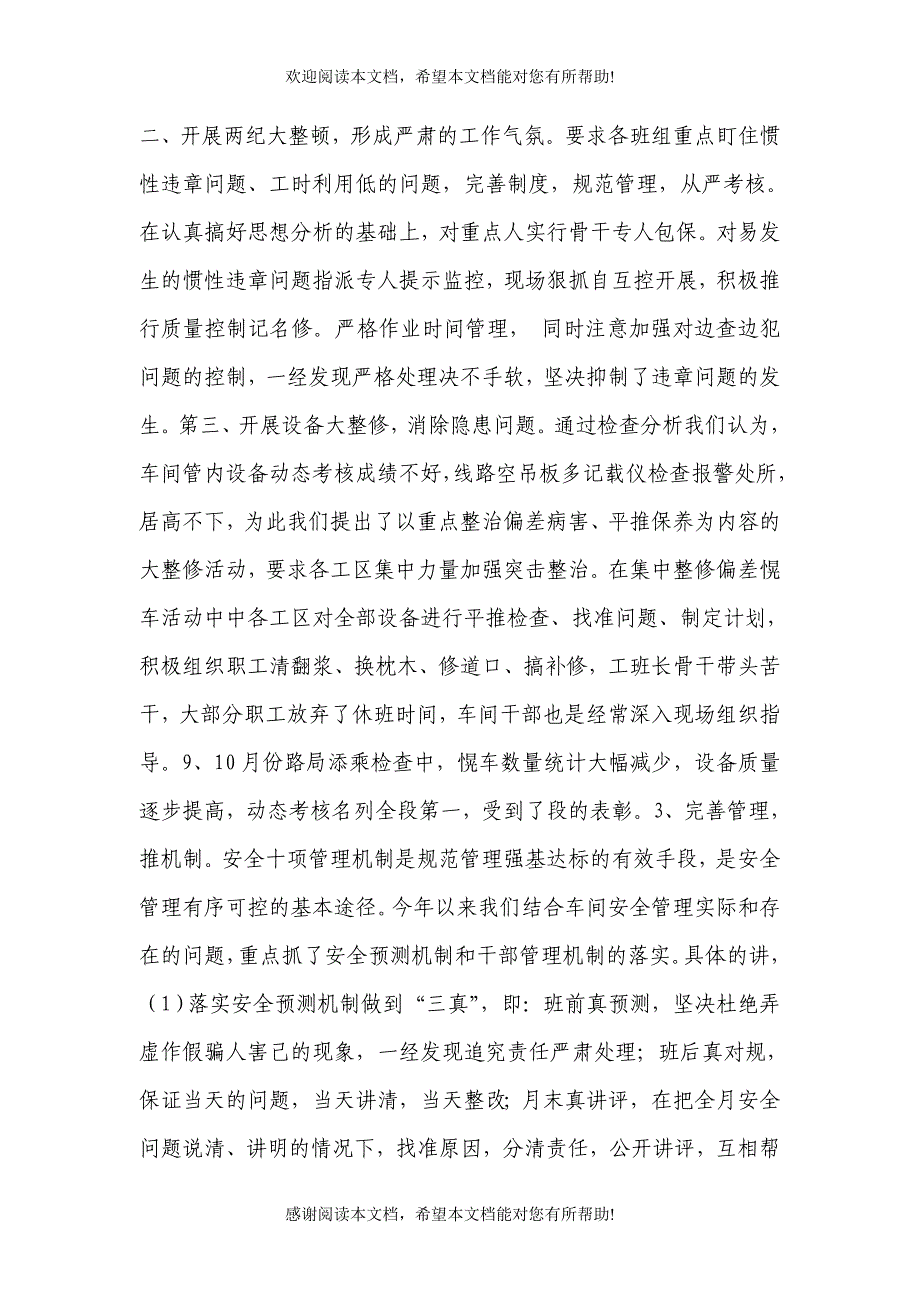 欢迎阅读本文档，希望本文档能对您有所帮助!
二、开展两纪大整顿，形成严肃的工作气氛。要求各班组重点盯住惯
性违章问题、工时利用低的问题，完善制度，规范管理，从严考核。
在认真搞好思想分析的基础上，对重点人实行骨干专人包保。对易发
生的惯性违章问题指派专人提示监控，现场狠抓自互控开展，积极推
行质量控制记名修。严格作业时间管理， 同时注意加强对边查边犯
问题的控制，一经发现严格处理决不手软，坚决抑制了违章问题的发
生。第三、开展设备大整修，消除隐患问题。通过检查分析我们认为，
车间管内设备动态考核成绩不好，线路空吊板多记载仪检查报警处所，
居高不下，为此我们提出了以重点整治偏差病害、平推保养为内容的
大整修活动，要求各工区集中力量加强突击整治。在集中整修偏差愰
车活动中中各工区对全部设备进行平推检查、找准问题、制定计划，
积极组织职工清翻浆、换枕木、修道口、搞补修，工班长骨干带头苦
干，大部分职工放弃了休班时间，车间干部也是经常深入现场组织指
导。9、10月份路局添乘检查中，愰车数量统计大幅减少，设备质量
逐步提高，动态考核名列全段第一，受到了段的表彰。3、完善管理，
推机制。安全十项管理机制是规范管理强基达标的有效手段，是安全
管理有序可控的基本途径。今年以来我们结合车间安全管理实际和存
在的问题，重点抓了安全预测机制和干部管理机制的落实。具体的讲，
（1）落实安全预测机制做到“三真”，即：班前真预测，坚决杜绝弄
虚作假骗人害己的现象，一经发现追究责任严肃处理；班后真对规，
保证当天的问题，当天讲清，当天整改；月末真讲评，在把全月安全
问题说清、讲明的情况下，找准原因，分清责任，公开讲评，互相帮
感谢阅读本文档，希望本文档能对您有所帮助!